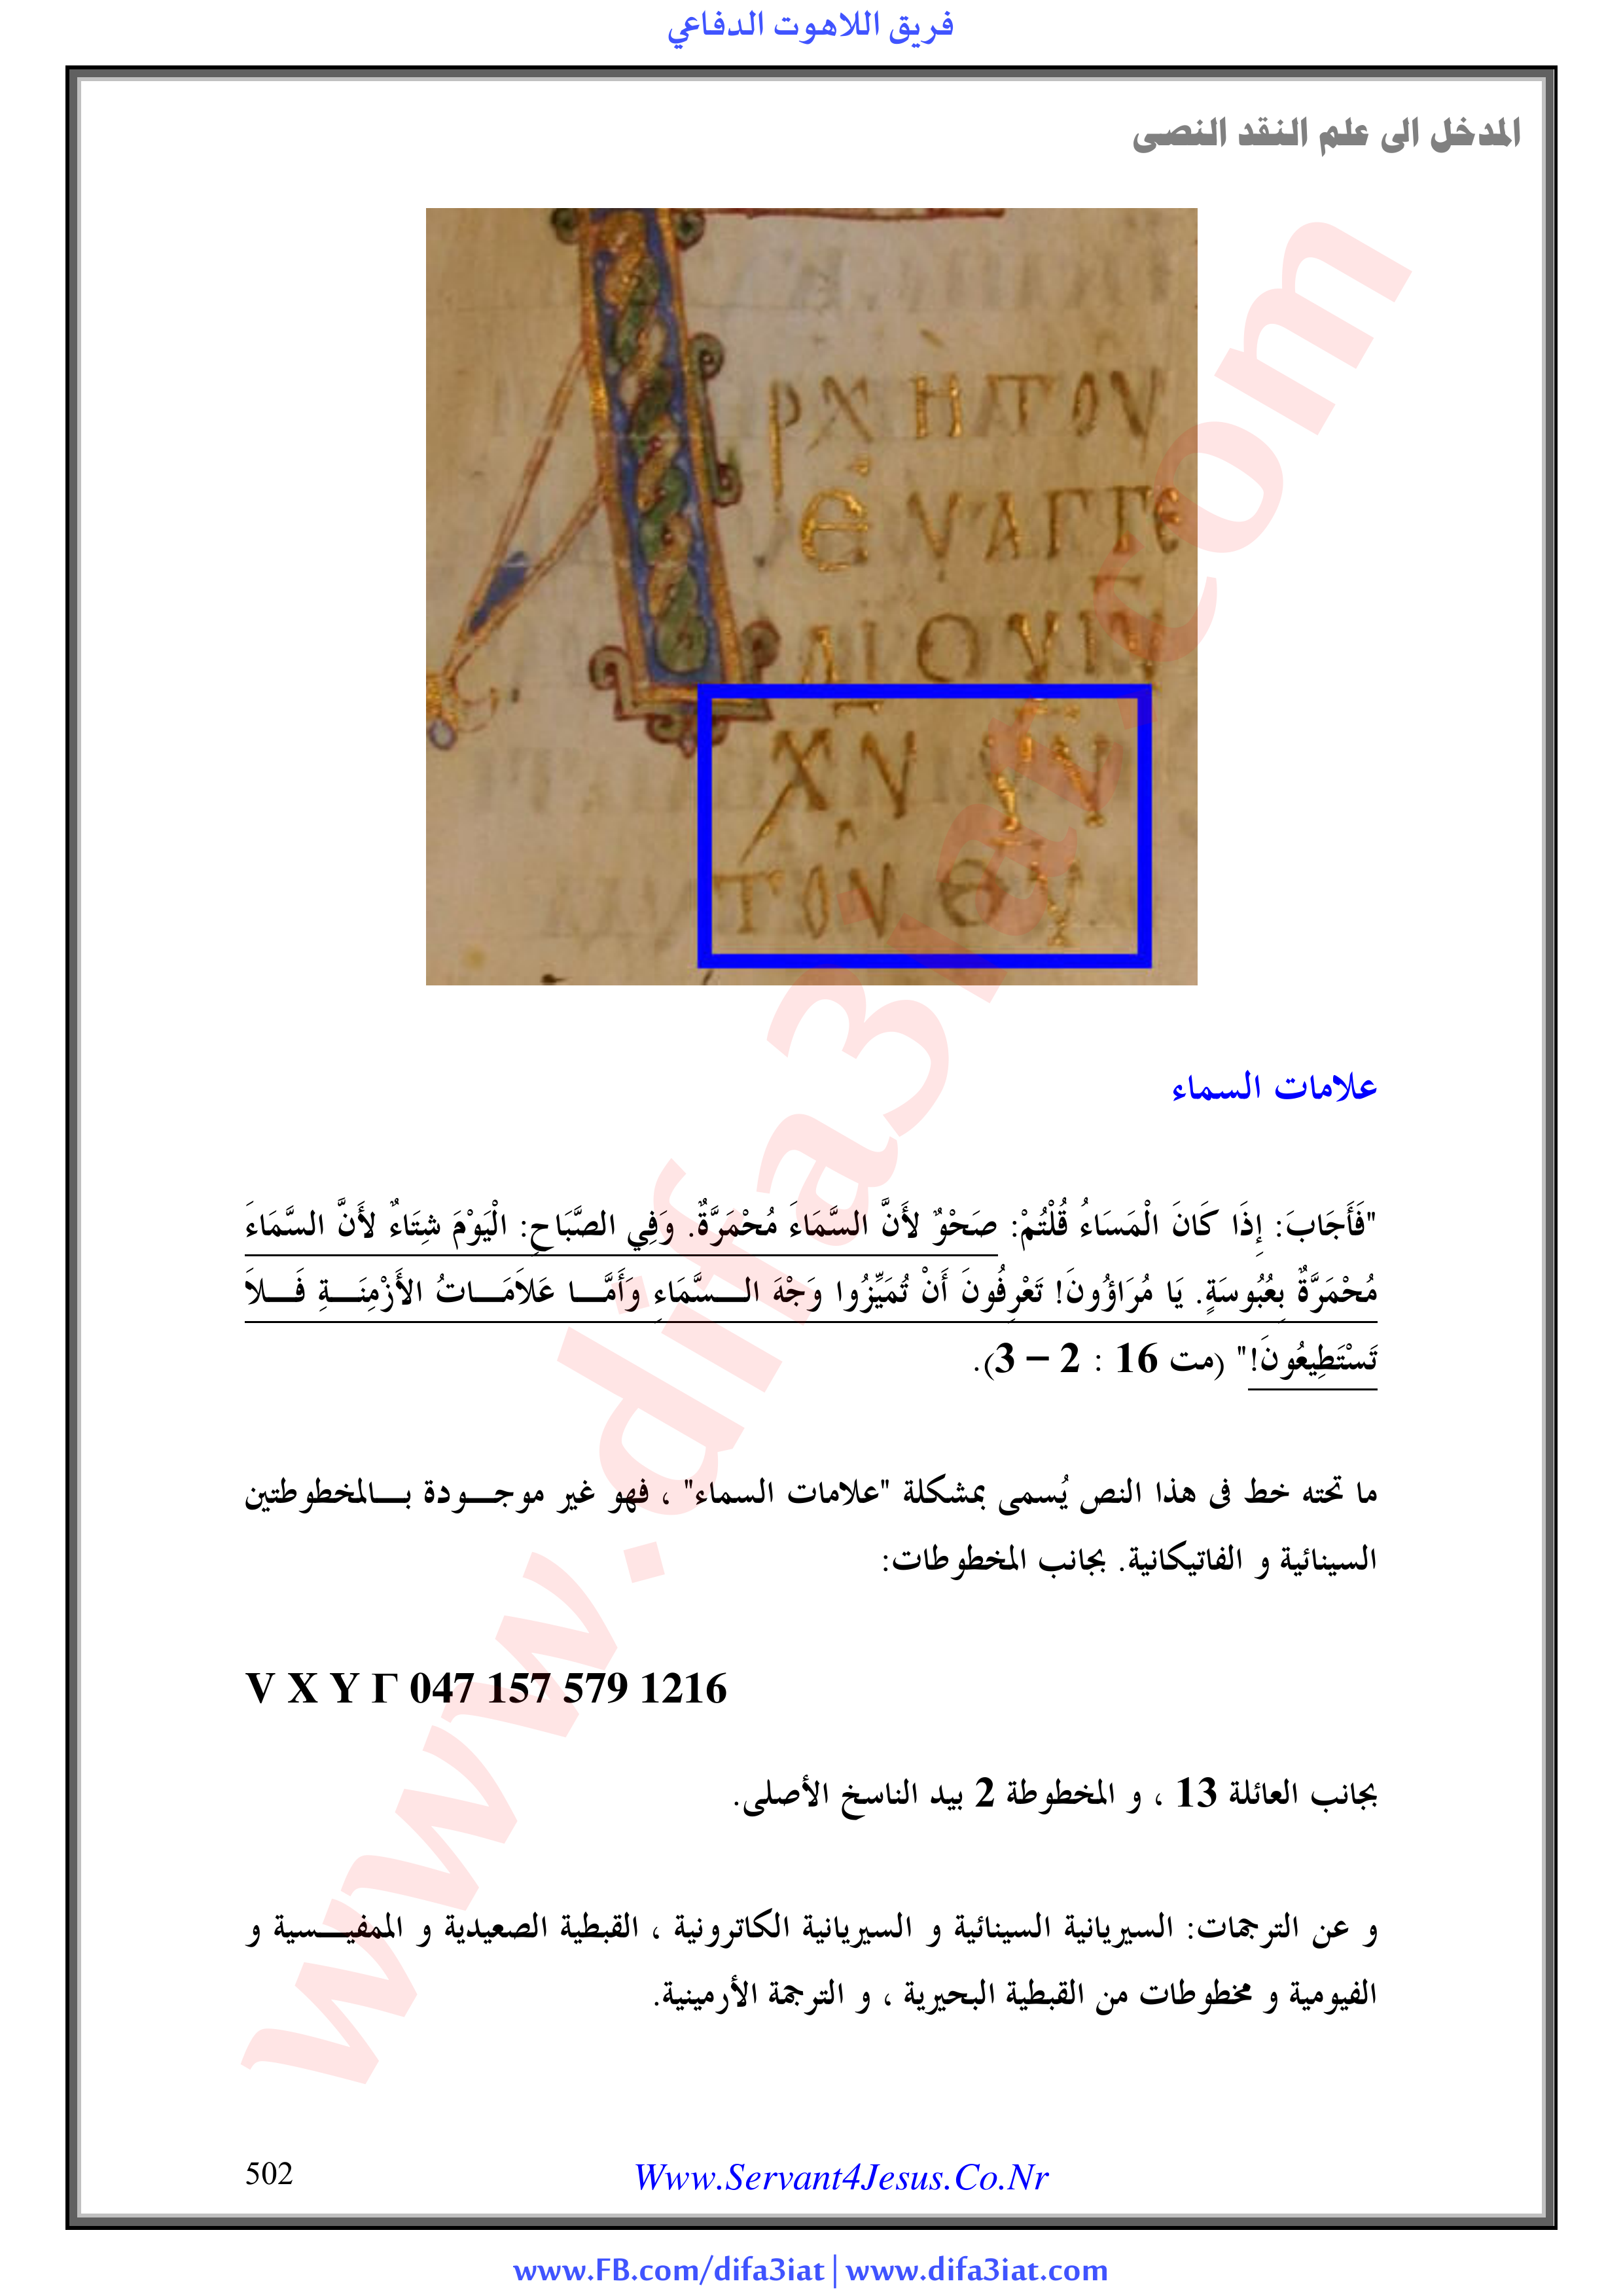 فريق اللاهوت الدفاعي
المدخل الى علم النقد النصى
ΡΧΗ ΤΟΥ
ΕΥΑΓΓΕ
ΛΙΟΥ ΙΥ
ΧΥ ΥΥ
ΤΟΥ ΘΥ
علامات السماء
"فَأَجَابَ: إِذَا كَانَ الْمَسَاءُ قُلْتُمْ: صَحْوٌ لأَنَّ السَّمَاءَ مُحْمَرَّةٌ. وَفِي الصَّبَاحِ: الْيَوْمَ شِتَاءٌ لأَنَّ السَّمَاءَ
مُحْمَرَّةٌ بِعُبُوسَةٍ. يَا مُرَاؤُونَ! تَعْرِفُونَ أَنْ تُمَيِّزُوا وَجْهَ السَّمَاءِ وَأَمَّا عَلاَمَاتُ الأَزْمِنَةِ فَلاَ
تَسْتَطِيعُونَ!" (مت 16 : 2 – 3).
ما تحته خط فى هذا النص يُسمى بمشكلة "علامات السماء" ، فهو غير موجودة بالمخطوطتين
السينائية و الفاتيكانية. بجانب المخطوطات:
V X Y Γ 047 157 579 1216
بجانب العائلة 13 ، و المخطوطة 2 بيد الناسخ الأصلى.
و عن الترجمات: السيريانية السينائية و السيريانية الكاترونية ، القبطية الصعيدية و الممفيسية و
الفيومية و مخطوطات من القبطية البحيرية ، و الترجمة الأرمينية.
502
Www.Servant4Jesus.Co.Nr
www.FB.com/difa3iat | www.difa3iat.com
www.difa3iat.com